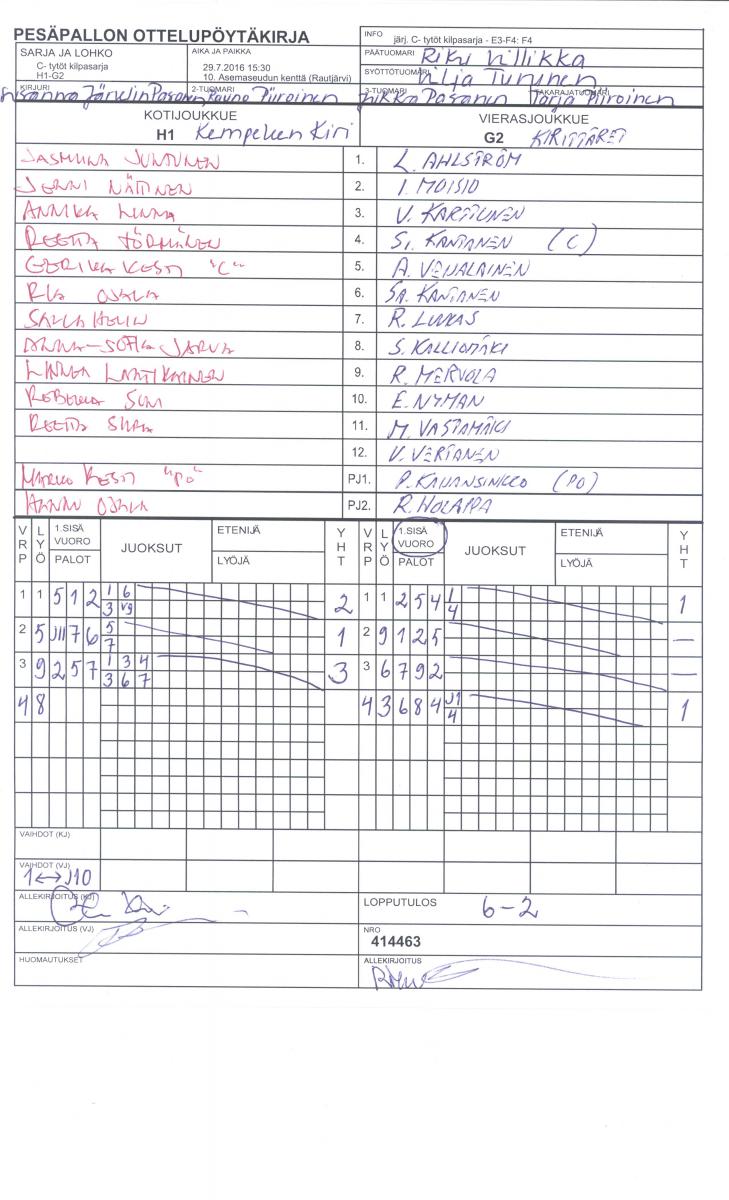 PESÄPALLON OTTELUPÖYTÄKIRJA
INFO
järj. C- tytöt kilpasarja - E3-F4: F4
SARJA JA LOHKO
C- tytöt kilpasarja
H1-G2
AIKA JA PAIKKA
29.7.2016 15:30
10. Asemaseudun kenttä (Rautjärvi)
PÄÄTUOMARI
Riku Villikka
SYÖTTÖTUOMARI
Vilja Turunen
KIRJURI
Susanna Järvelin Pasanen
2-TUOMARI
Rauno Piiroinen
3-TUOMARI
Jukka Pasanen
TAKARAJATUOMARI
Tarja Piiroinen
KOTIJOUKKUE
H1 Kempeleen Kiri
VIERASJOUKKUE
G2 KIRITTÄRET
JASMIINA JUNTUNEN 1. L. AHLSTRÖM
JENNI NÄTINEN 2. I. MOISIO
ANNIKA LINNA 3. V. KARTTUNEN
REETTA TÖRMÄNEN 4. SI. KANTANEN (C)
EERIKA KESTI "C" 5. A. VENÄLÄINEN
PIA OJALA 6. SA. KANTANEN
SALLA HELIN 7. R. LUKAS
ANNA-SOFIA JARVA 8. S. KALLIOMÄKI
LINNEA LAATIKAINEN 9. R. MERVOLA
REBEKKA SUNI 10. E. NYMAN
REETTA 11. M. VASTAMÄKI
12. V. VERTANEN
MARKO KESTI "PO" PJ1. P. KAUANSINKKO (PO)
HANNU OJALA PJ2. R. HOLAPPA
VRP LYÖ 1.SISÄ VUORO PALOT JUOKSUT ETENIJÄ LYÖJÄ YHT VRP LYÖ 1.SISÄ VUORO PALOT JUOKSUT ETENIJÄ LYÖJÄ YHT
1 1 5 1 2 1 6 2 1 1 2 5 4 1 1
3 V9 4
2 5 JIII 7 6 5 1 2 9 1 2 5 —
7
3 9 2 5 7 1 3 4 3 3 6 7 9 2 —
3 6 7
4 8 4 3 6 8 4 J1 1
4
VAIHDOT (KJ)
VAIHDOT (VJ)
1 ↔ J10
ALLEKIRJOITUS (KJ)
LOPPUTULOS
6-2
ALLEKIRJOITUS (VJ)
NRO
414463
HUOMAUTUKSET
ALLEKIRJOITUS